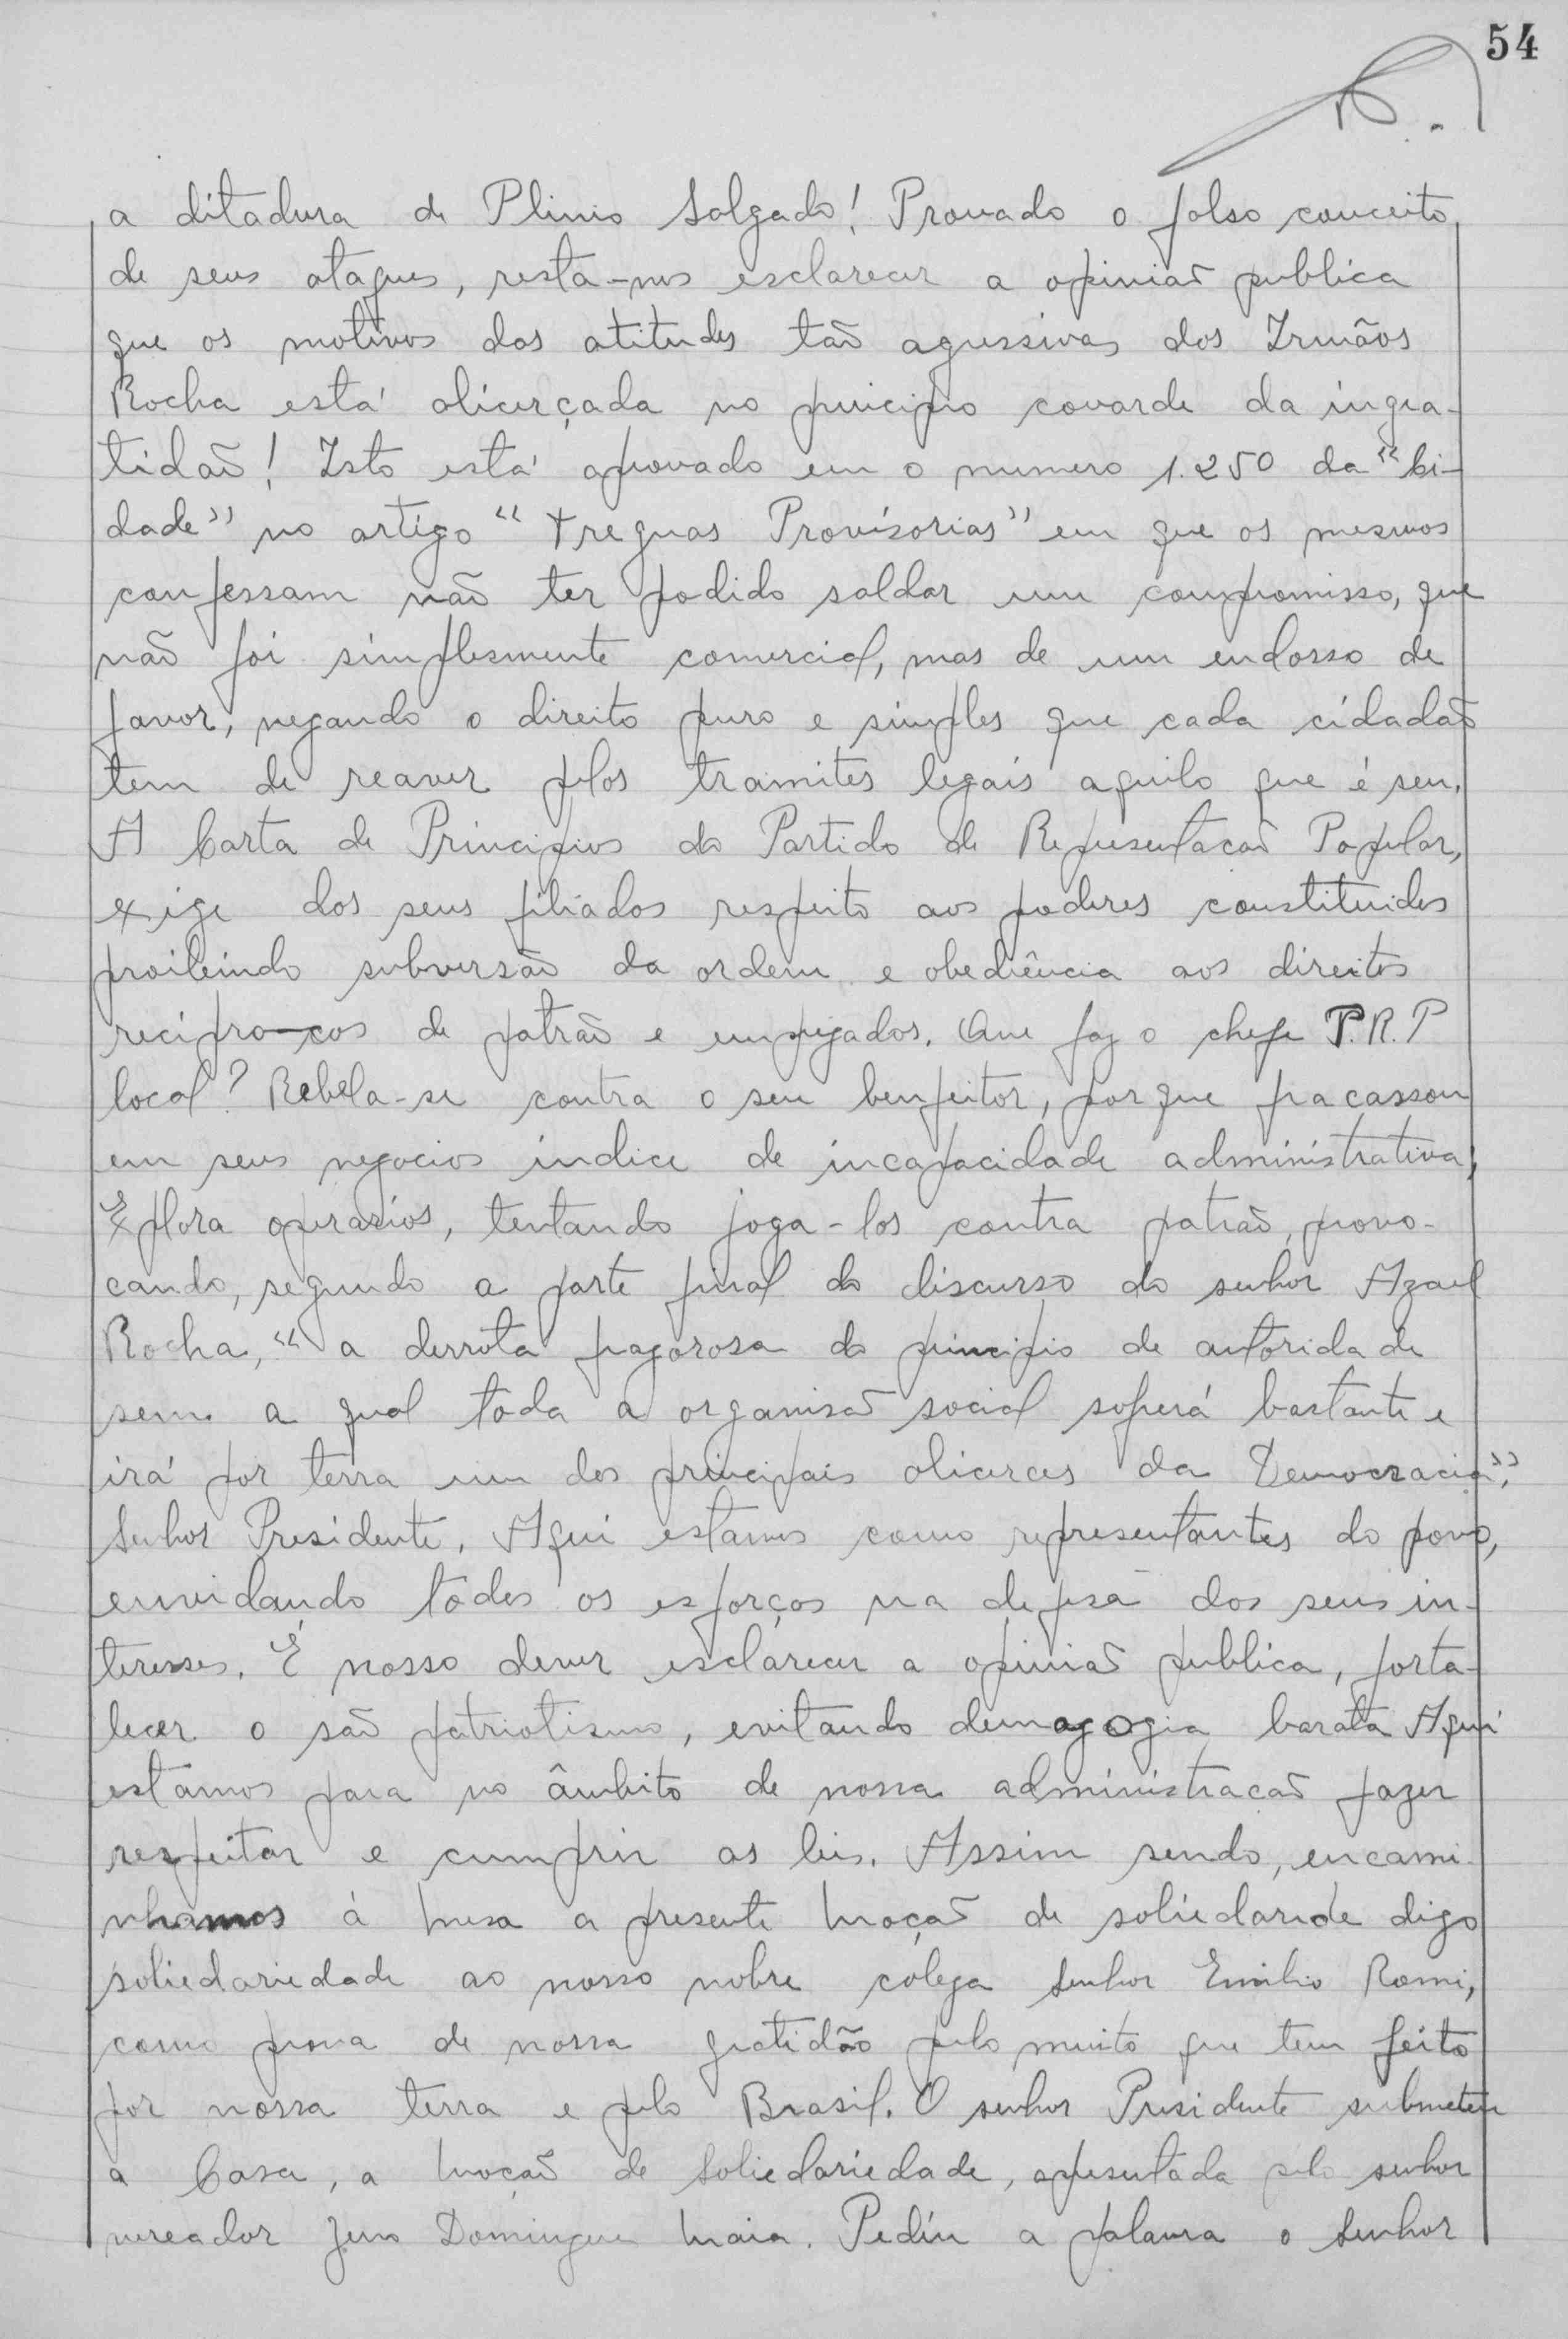 54
a ditadura de Plinio Salgado! Provado o falso conceito
de seus ataques, resta-nos esclarecer a opinião publica
que os motivos das atitudes tão agressivas dos Irmãos
Rocha está alicerçada no principio covarde da ingra-
tidão! Isto está aprovado em o numero 1.250 da "Ci-
dade" no artigo "Treguas Provisorias" em que os mesmos
confessam não ter podido saldar um compromisso, que
não foi simplesmente comercial, mas de um endosso de
favor, negando o direito puro e simples que cada cidadão
tem de reaver pelos tramites legais aquilo que é seu.
A Carta de Principios do Partido de Representacão Popular,
exige dos seus filiados respeito aos poderes constituidos
proibindo subversão da ordem e obediência aos direitos
recipro-cos de patrão e empregados. Que faz o chefe P.R.P
local? Rebela-se contra o seu benfeitor, porque fracassou
em seus negocios indice de incapacidade administrativa;
Explora operarios, tentando joga-los contra patrão, provo-
cando, segundo a parte final do discurso do senhor Azael
Rocha, "a derrota pagorosa do principio de autoridade
sem a qual toda a organisão social soperá bastante e
irá por terra um dos principais alicerces da Democracia".
Senhor Presidente, Aqui estamos como representantes do povo,
envidando todos os esforços na defesa dos seus in-
teresses. É nosso dever esclarecer a opinião publica, forta-
lecer o são patriotismo, evitando demagogia barata Aqui
estamos para no âmbito de nossa administracão fazer
respeitar e cumprir as leis. Assim sendo, encami-
nhamos á Mesa a presente Moção de soliedaride digo
soliedariedade ao nosso nobre colega Senhor Emilio Romi,
como prova de nossa gratidão pelo muito que tem feito
por nossa terra e pelo Brasil. O senhor Presidente submeteu
a Casa, a Moção de Soliedariedade, apresentada pelo senhor
vereador Zeno Domingues Maia. Pediu a palavra o Senhor